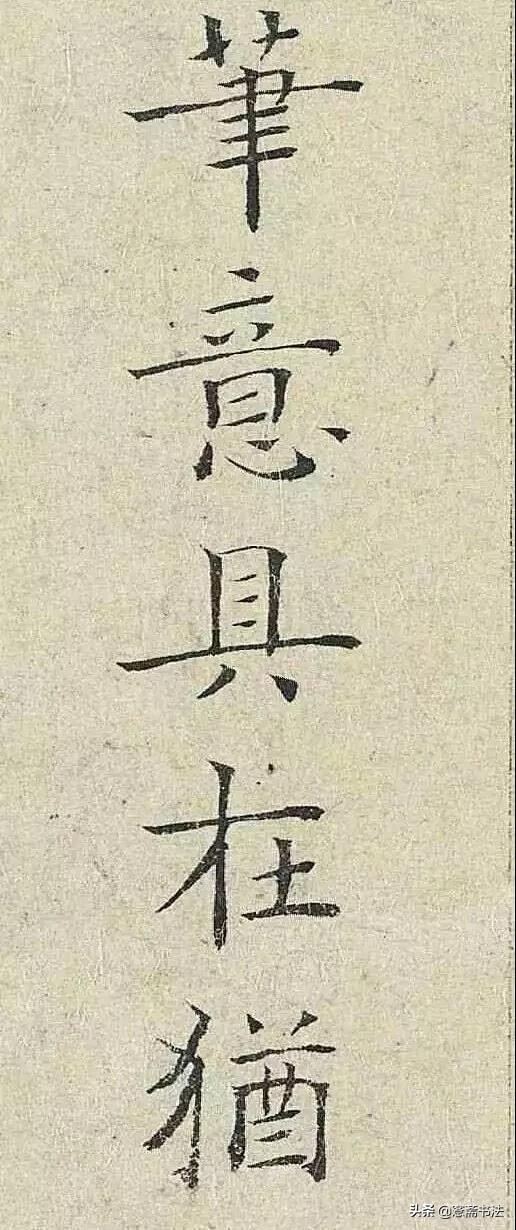 筆意具在猶
头条 @騫斋书法